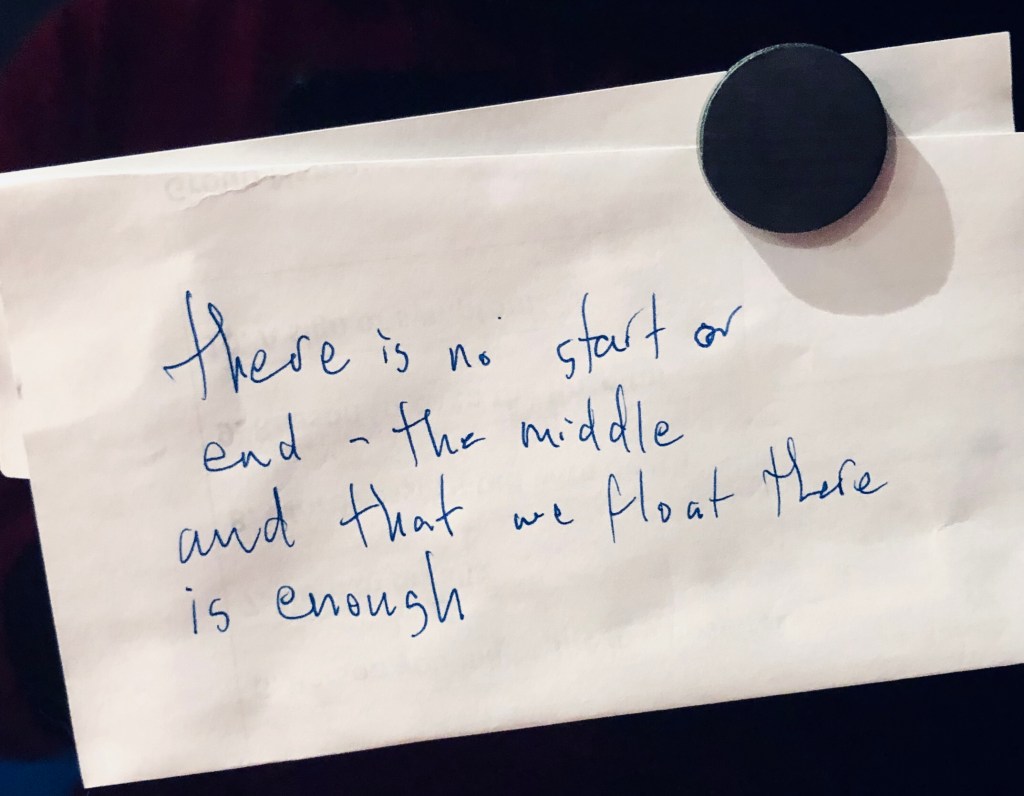 there is no start or
end - the middle
and that we float there
is enough